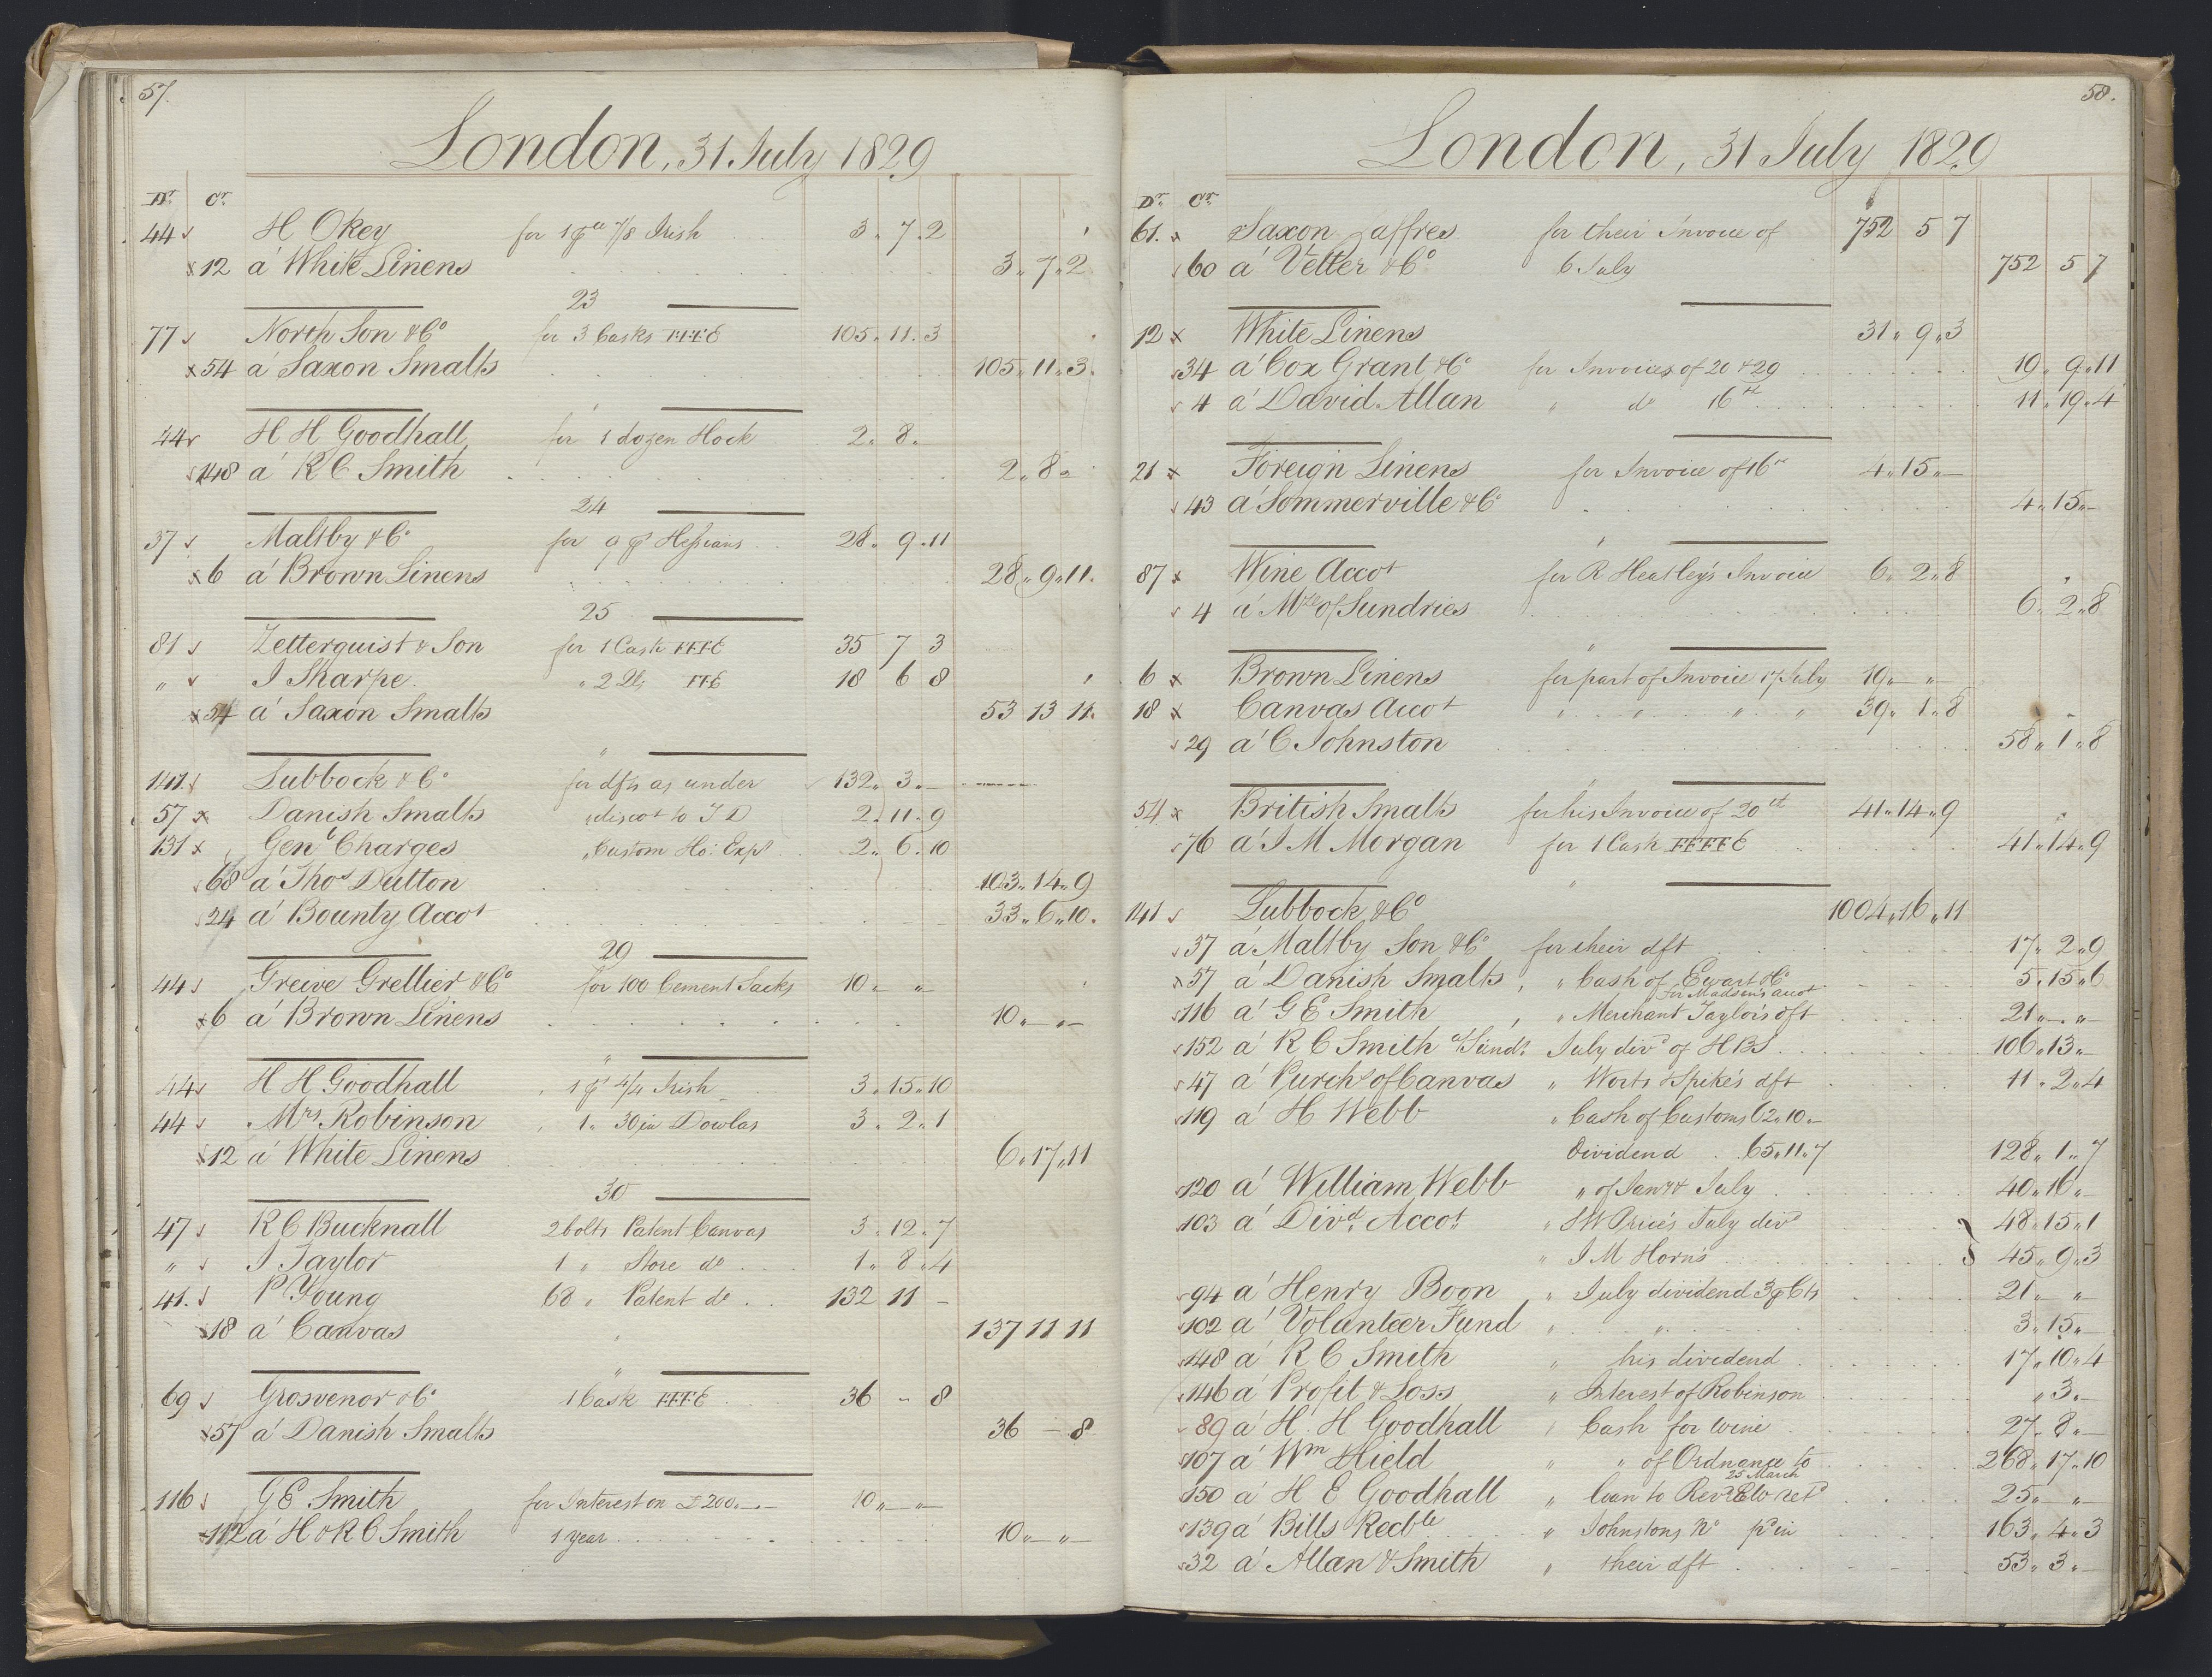 57.
London, 31 July 1829
Dr. Cr.
44 H Okey for 1 pce 7/8 Irish 3 . 7 . 2
12 a' White Linens 3 " 7 " 2
23
77 North Son & Co for 3 Casks FFFE 105 . 11 . 3
54 a' Saxon Smalts 105 " 11 " 3
"
44 H H Goodhall for 1 dozen Hock 2 " 8 "
148 a' R C Smith 2 " 8 "
24
37 Maltby & Co for 9 p Hessians 28 . 9 . 11
6 a' Brown Linens 28 " 9 " 11
25
81 Zetterquist & Son for 1 Cask FFFE 35 7 3
" I Sharpe " 2 FFE 18 6 8
54 a' Saxon Smalts 53 13 11
"
141 Lubbock & Co for dfts as under 132 " 3 " —
57 Danish Smalts " discot to T D 2 " 11 " 9
131 Genl Charges " Custom Ho: Exps 2 " 6 . 10
68 a' Thos Dutton 103 " 14 " 9
24 a' Bounty Accot 33 " 6 " 10
29
44 Greive Grellier & Co for 100 Cement Sacks 10 " — " —
6 a' Brown Linens 10 " — " —
"
44 H H Goodhall 1 ps 4/4 Irish 3 . 15 . 10
44 Mrs Robinson 1 " 30 in Dowlas 3 . 2 . 1
12 a' White Linens 6 " 17 " 11
30
47 R C Bucknall 2 bolts Patent Canvas 3 . 12 . 7
" I Taylor 1 " Store do 1 " 8 " 4
41. P Young 68 " Patent do 132 11 —
18 a' Canvas " 137 11 11
"
69 Grosvenor & Co 1 Cask FFFE 36 — 8
57 a' Danish Smalts 36 — 8
116 G E Smith for Interest on £200 " — " — 10 " — " —
112 a' H & R C Smith 1 year 10 " — " —
58.
London, 31 July 1829
Dr. Cr.
61. Saxon Zaffres for their Invoice of 752 5 7
60 a' Vetter & Co 6 July 752 5 7
12 White Linens 31 " 9 " 3
34 a' Cox Grant & Co for Invoices of 20 & 29 19 " 9 " 11
4 a' David Allan " do 16th 11 " 19 " 4
21 Foreign Linens for Invoice of 16th 4 " 15 " —
43 a' Sommerville & Co 4 " 15 " —
87 Wine Accot for R Heatley's Invoice 6 " 2 " 8
4 a' Mdse of Sundries 6 " 2 " 8
"
6 Brown Linens for part of Invoice 17 July 19 " — " —
18 Canvas Accot " " " " 39 " 1 " 8
29 a' C Johnston 58 " 1 " 8
"
54 British Smalts for his Invoice of 20th 41 " 14 " 9
76 a' I M Morgan for 1 Cask FFFFE 41 " 14 " 9
"
141 Lubbock & Co 1004 " 16 " 11
37 a' Maltby Son & Co for their dft 17 " 2 " 9
57 a' Danish Smalts, " Cash of Ewart & Co 5 . 15 " 6
for Madsen's accot
116 a' G E Smith, " Merchant Taylors dft 21 " — " —
152 a' R C Smith a/Sunds July divd of HBS 106 " 13 " —
47 a' Purchs of Canvas " Worts & Spike's dft 11 " 2 " 4
119 a' H Webb " Cash of Customs 62 " 10 " —
Dividend 65 " 11 " 7 128 " 1 " 7
120 a' William Webb " of Jany & July 40 " 16 " —
103 a' Divd. Accot. " S W Price's July divd 48 " 15 " 1
" I M Horn's 45 " 9 " 3
94 a' Henry Boon " July dividend 3 p Cts 21 " — " —
102 a' Volunteer Fund " " 3 " 15 " —
148 a' R C Smith " his dividend 17 " 10 " 4
146 a' Profit & Loss " Interest of Robinson " 3 " —
89 a' H. H Goodhall " Cash for wine 27 " 8 " —
107 a' Wm Hield " " of Ordnance to 268 " 17 " 10
25 March
150 a' H E Goodhall " loan to Revd 25 " — " —
139 a' Bills Recble " Johnstons No pd in 163 " 4 " 3
32 a' Allan & Smith " their dft 53 " 3 " —